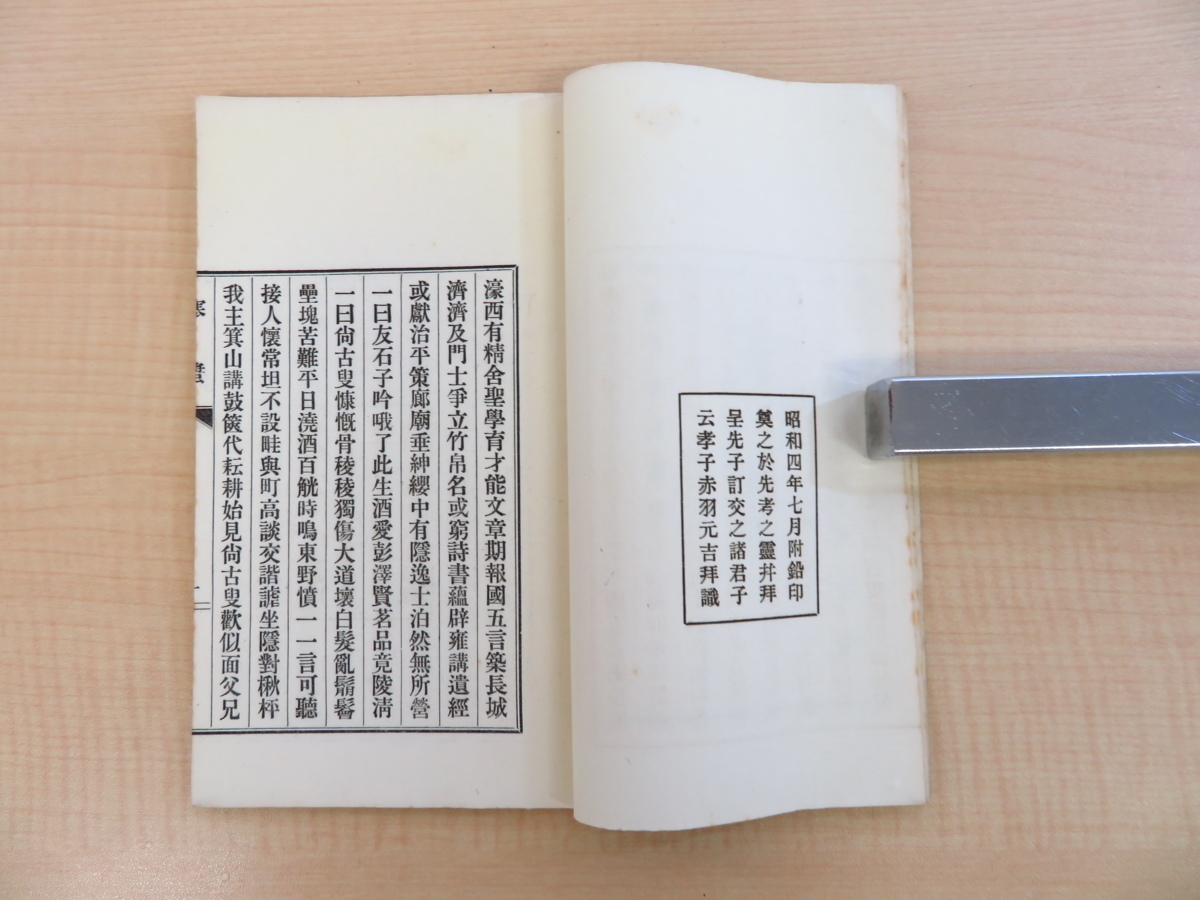 昭和四年七月附鉛印
奠之於先考之靈幷拜
呈先子訂交之諸君子
云孝子赤羽元吉拜識
濠西有精舍聖學育才能文章期報國五言築長城
濟濟及門士爭立竹帛名或窮詩書蘊辟雍講遺經
或獻治平策廊廟垂紳纓中有隱逸士泊然無所營
一曰友石子吟哦了此生酒愛彭澤賢茗品竟陵淸
一曰尙古叟慷慨骨稜稜獨傷大道壞白髮亂鬅鬙
壘塊苦難平日澆酒百觥時鳴東野憤一一言可聽
接人懷常坦不設畦與町高談交諧謔坐隱對楸枰
我主箕山講鼓篋代耘耕始見尙古叟歡似面父兄